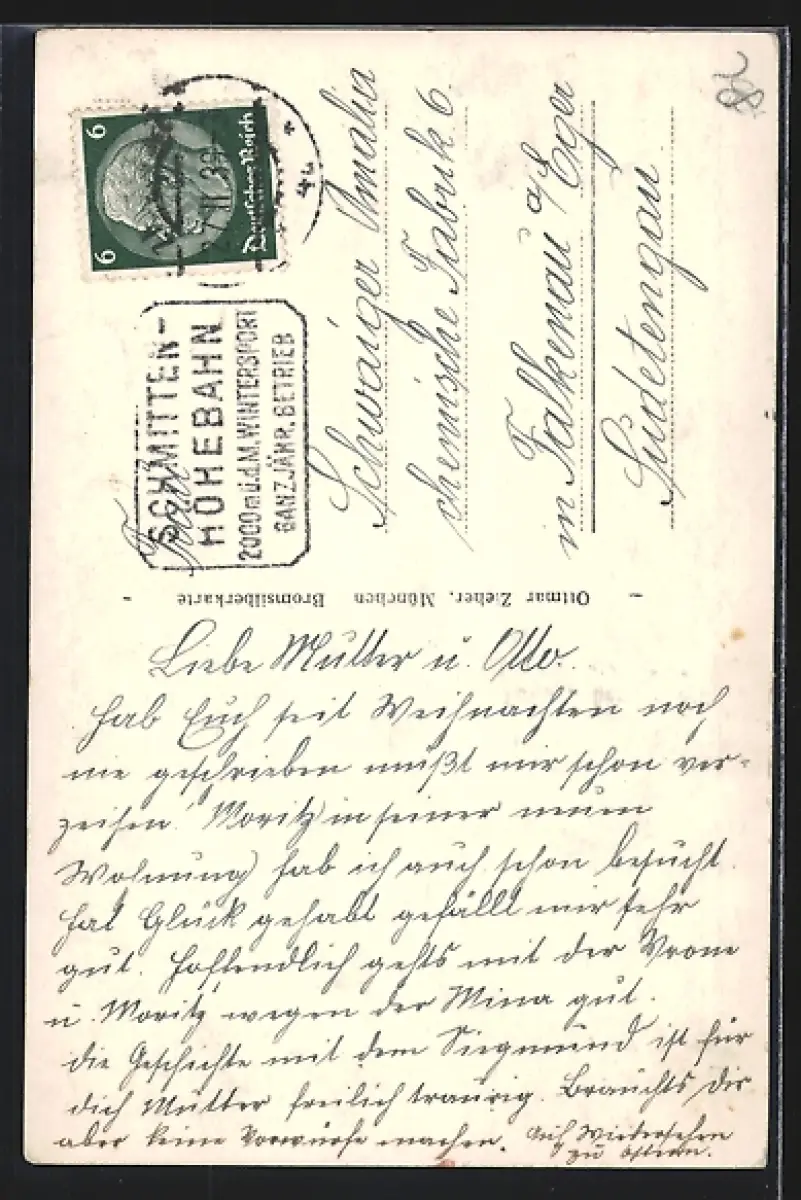 82
6
6
Deutsches Reich
SCHMITTEN-
HÖHEBAHN
2000 m ü.d.M. WINTERSPORT
GANZJÄHR. BETRIEB
Frau
Schwaiger Amalia
chemische Fabrik 6.
in Falkenau a/Eger
Sudetengau
Ottmar Zieher, München Bromsilberkarte
Liebe Mutter u. Otto.
hab Euch seit Weihnachten noch
nie geschrieben müßt mir schon ver-
zeihen. Moritz (in seiner neuen
Wohnung) hab ich auch schon besucht.
hat Glück gehabt gefällt mir sehr
gut. Hoffendlich gehts mit der Vrone
u. Moritz wegen der Mina gut.
die Geschichte mit dem Siegmund ist für
dich Mutter freilich traurig. Brauchts dir
aber keine Vorwürfe machen. Auf Wiedersehen
zu Ostern.